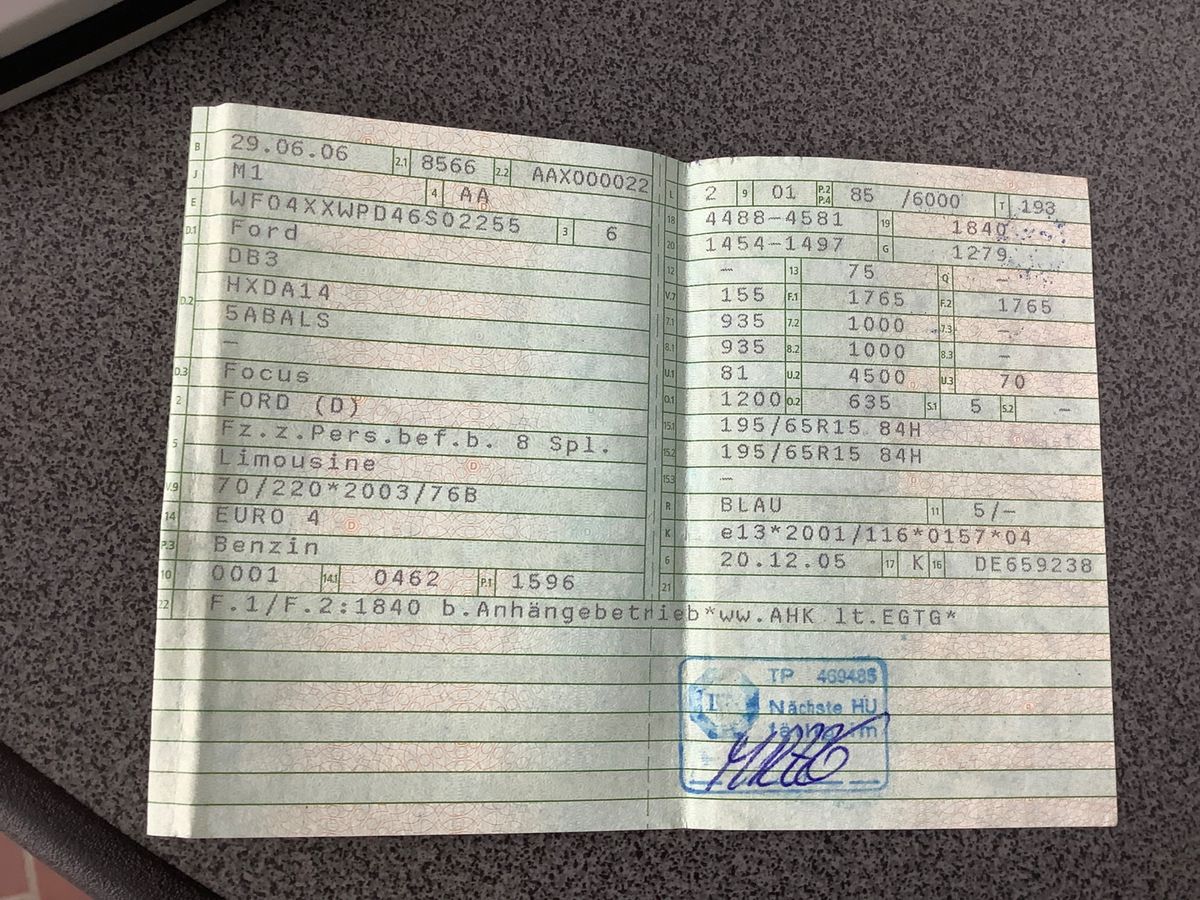 B 29.06.06 2.1 8566 2.2 AAX000022
J M1 4 AA
E WF04XXWPD46S02255 3 6
D.1 Ford
DB3
D.2 HXDA14
5ABALS
—
D.3 Focus
2 FORD (D)
Fz.z.Pers.bef.b. 8 Spl.
5 Limousine
V.9 70/220*2003/76B
14 EURO 4
P.3 Benzin
10 0001 14.1 0462 P.1 1596
L 2 9 01 P.2 P.4 85 /6000 T 193
18 4488-4581 19 1840
20 1454-1497 G 1279
12 — 13 75 Q —
V.7 155 F.1 1765 F.2 1765
7.1 935 7.2 1000 7.3 —
8.1 935 8.2 1000 8.3 —
U.1 81 U.2 4500 U.3 70
O.1 1200 O.2 635 S.1 5 S.2 —
15.1 195/65R15 84H
15.2 195/65R15 84H
15.3 —
R BLAU 11 5/—
K e13*2001/116*0157*04
6 20.12.05 17 K 16 DE659238
21
22 F.1/F.2:1840 b.Anhängebetrieb*ww.AHK lt.EGTG*
TP 469485
Nächste HU